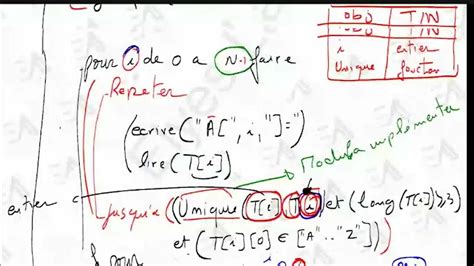 obj T/N
i entier
Unique fonction
pour i de 0 a N-1 faire
Repeter
ecrire("A[",i,"]=")
lire(T[i])
Module
entier
Jusqu'a ((Unique (T[i] T, i) et (long(T[i])≥3)
et (T[i][0] ∈ ["A".."Z"])